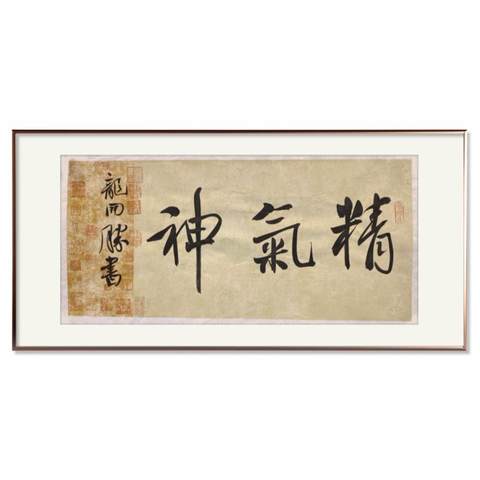 精氣神
龍開勝書